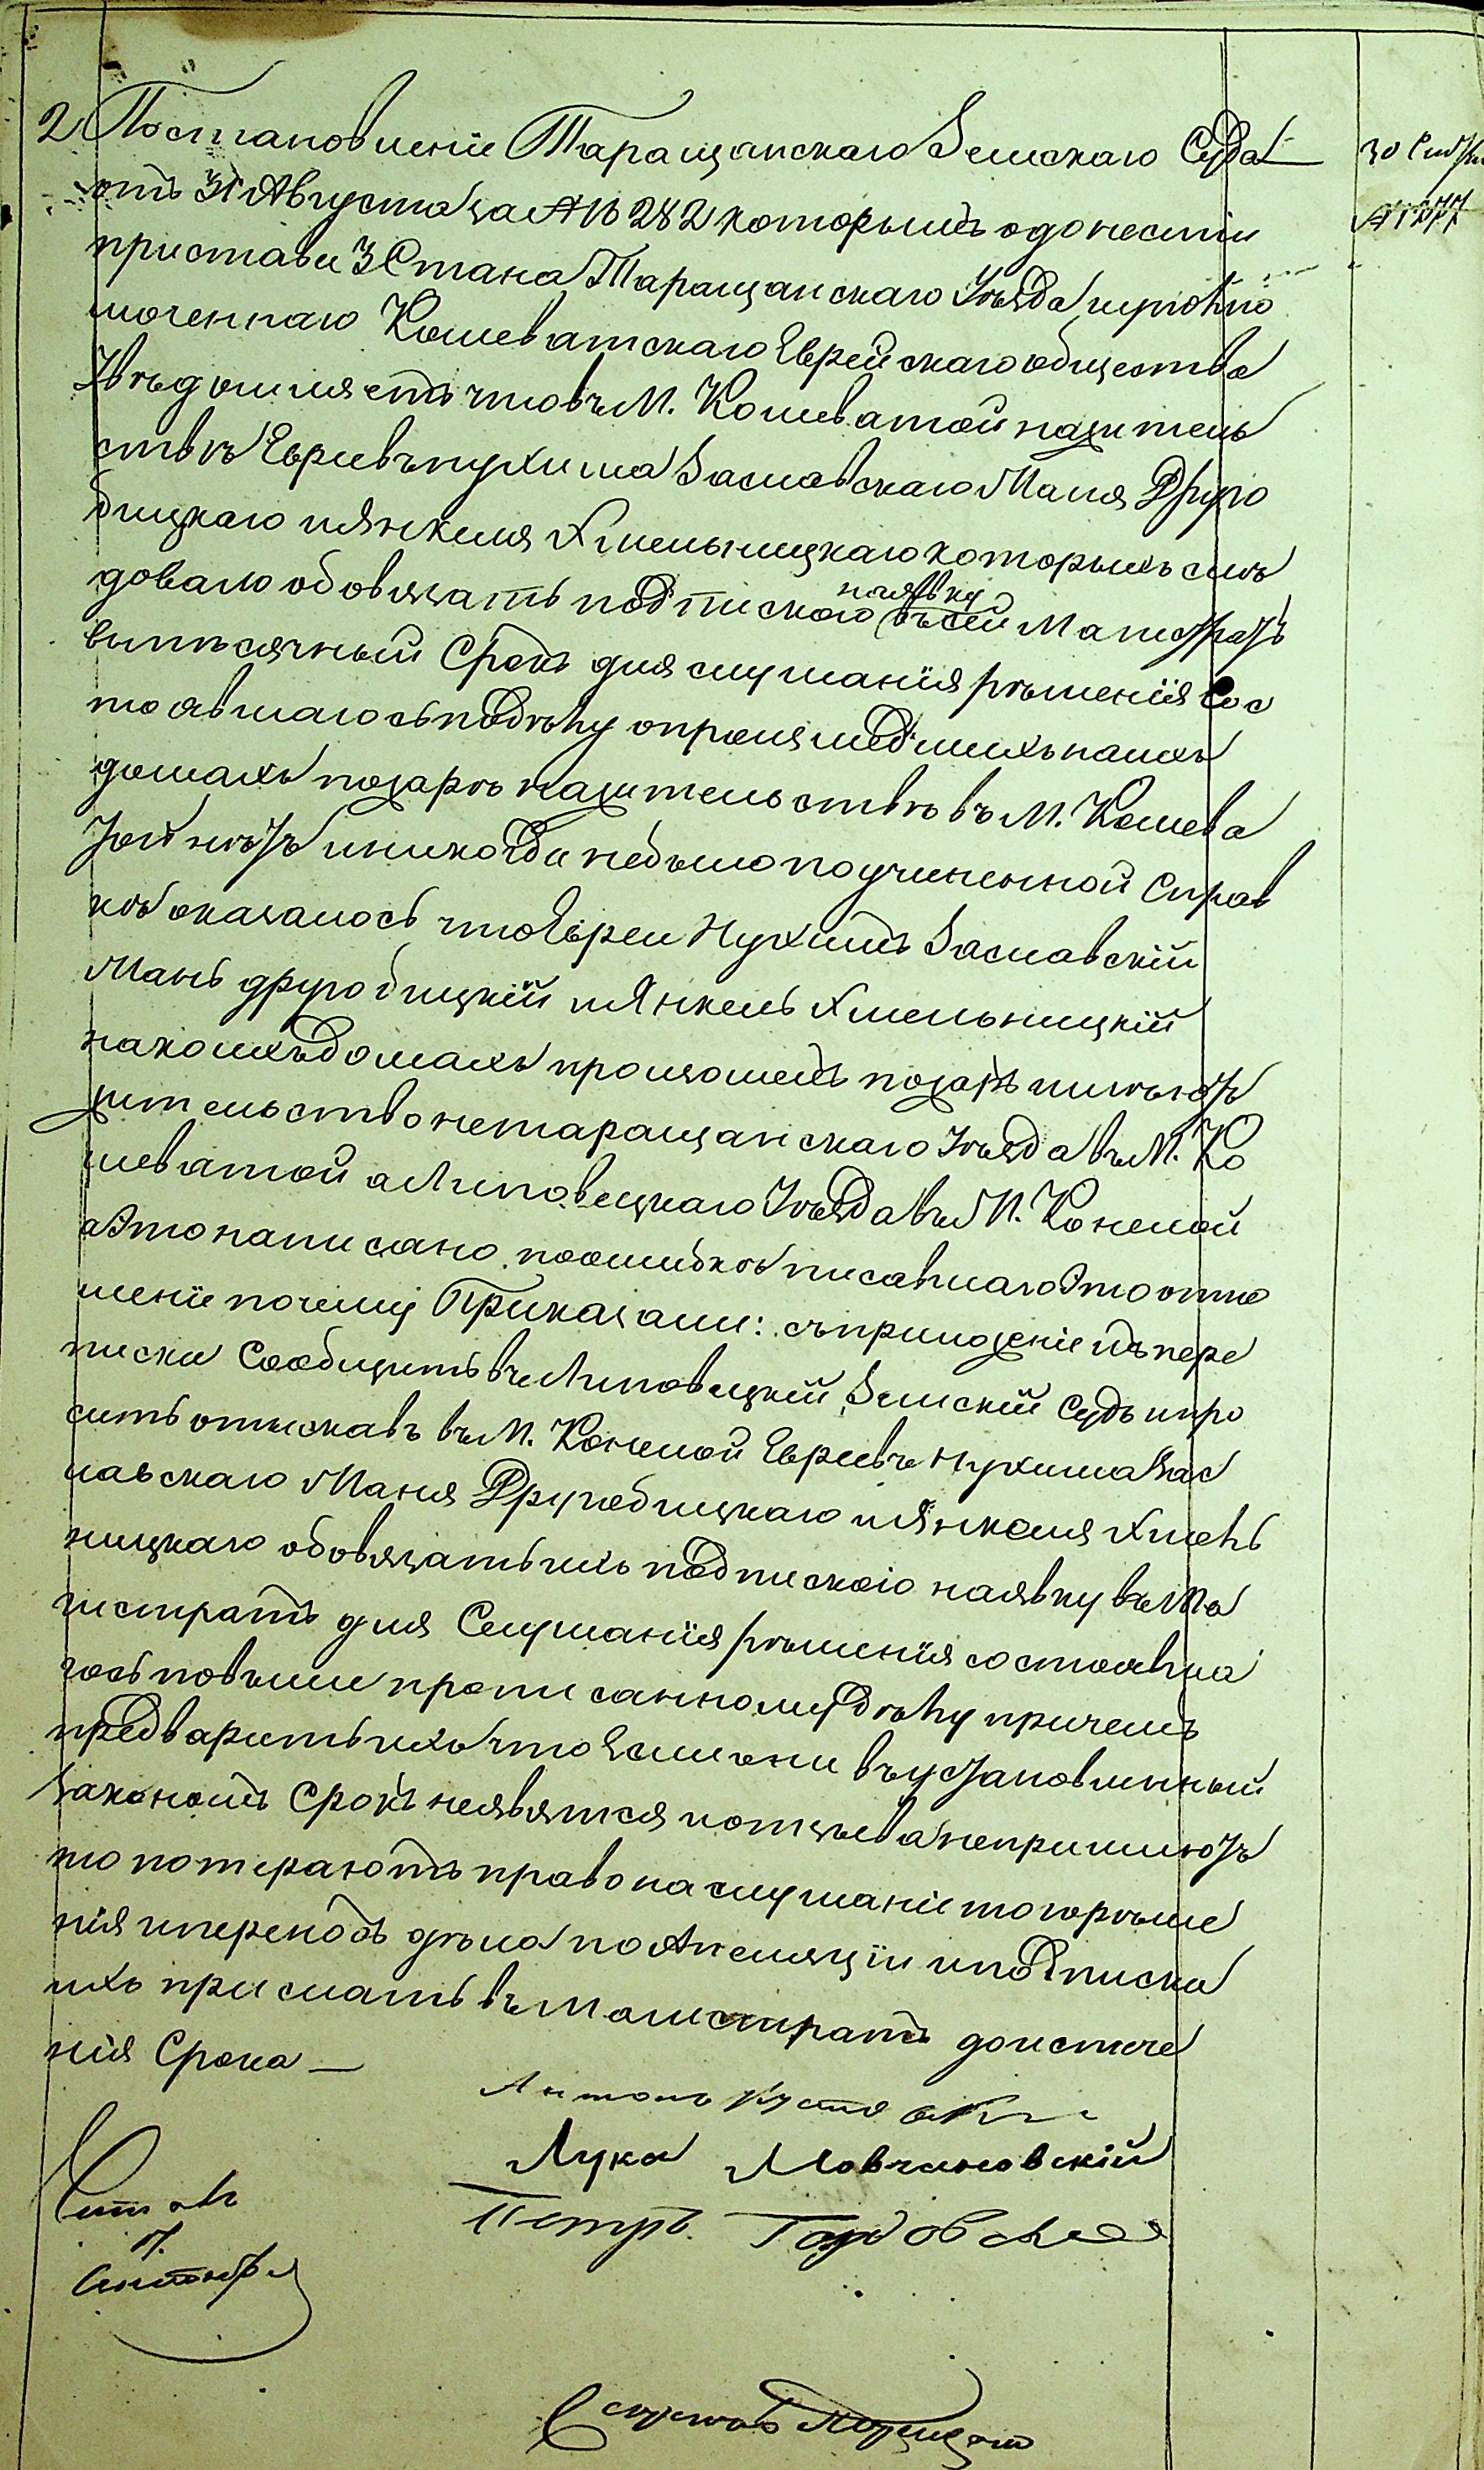 2 Постановленіе Таращанскаго Земскаго Суда
отъ 31 Августа за № 282 которымъ о донесеніи
пристава 3 Стана Таращанскаго Уѣзда и уполно
моченнаго Кошеватскаго Еврейскаго общества
Увѣдомляетъ что въ М. Кошеватой на жител
ствѣ Евреевъ Нухима Заславскаго Маня Друго
бицкаго и Янкеля Хмельницкаго которыхъ слѣ
довало обовязать подпискою на явку въ сей Магистратъ
въ мѣсячный Срокъ для слушанія рѣшенія Сос
тоявшагось по дѣлу о произшедшихъ в ихъ
домахъ пожарѣ на жительствѣ въ М. Кошева
той нѣтъ и никогда не было по учиненной Справ
кѣ оказалось что Евреи Нухимъ Заславскій
Мань Другобицкій и Янкель Хмельницкій
на коихъ домахъ произошелъ пожаръ имѣютъ
жительство не таращанскаго Уѣзда въ М. Ко
шеватой а Липовецкаго Уѣзда въ М. Конелой
а Это написано по ошибкѣ писавшаго Это отно
шеніе почему Приказали: съ приложеніемъ пере
писки Сообщить въ Липовецкій Земскій Судъ и про
сить отыскавъ въ М. Конелой Евреевъ Нухима Зас
лавскаго Маня Другобицкаго и Янкеля Хмель
ницкаго обовязать ихъ подпискою на явку въ Ма
гистратъ для Слушанія рѣшенія состоявша
гось по выше прописанному дѣлу причемъ
предварить ихъ что Если они въ установленный
закономъ Срокъ не явятся и отзыва не пришлютъ
то потеряютъ право на слушаніе того рѣше
нія и переносъ дѣла по Апеляціи и подписки
ихъ прислать въ Магистратъ до истече
нія Срока —
Антонъ
Лука Мовчановскій
Петръ
Сентября